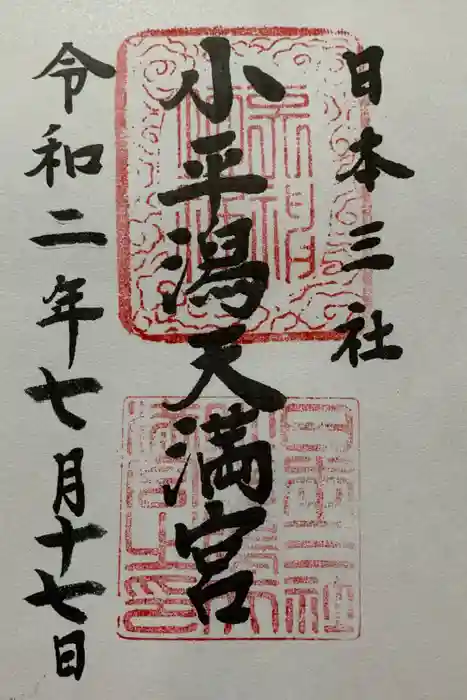 日本三社
小平潟天満宮
令和二年七月十七日